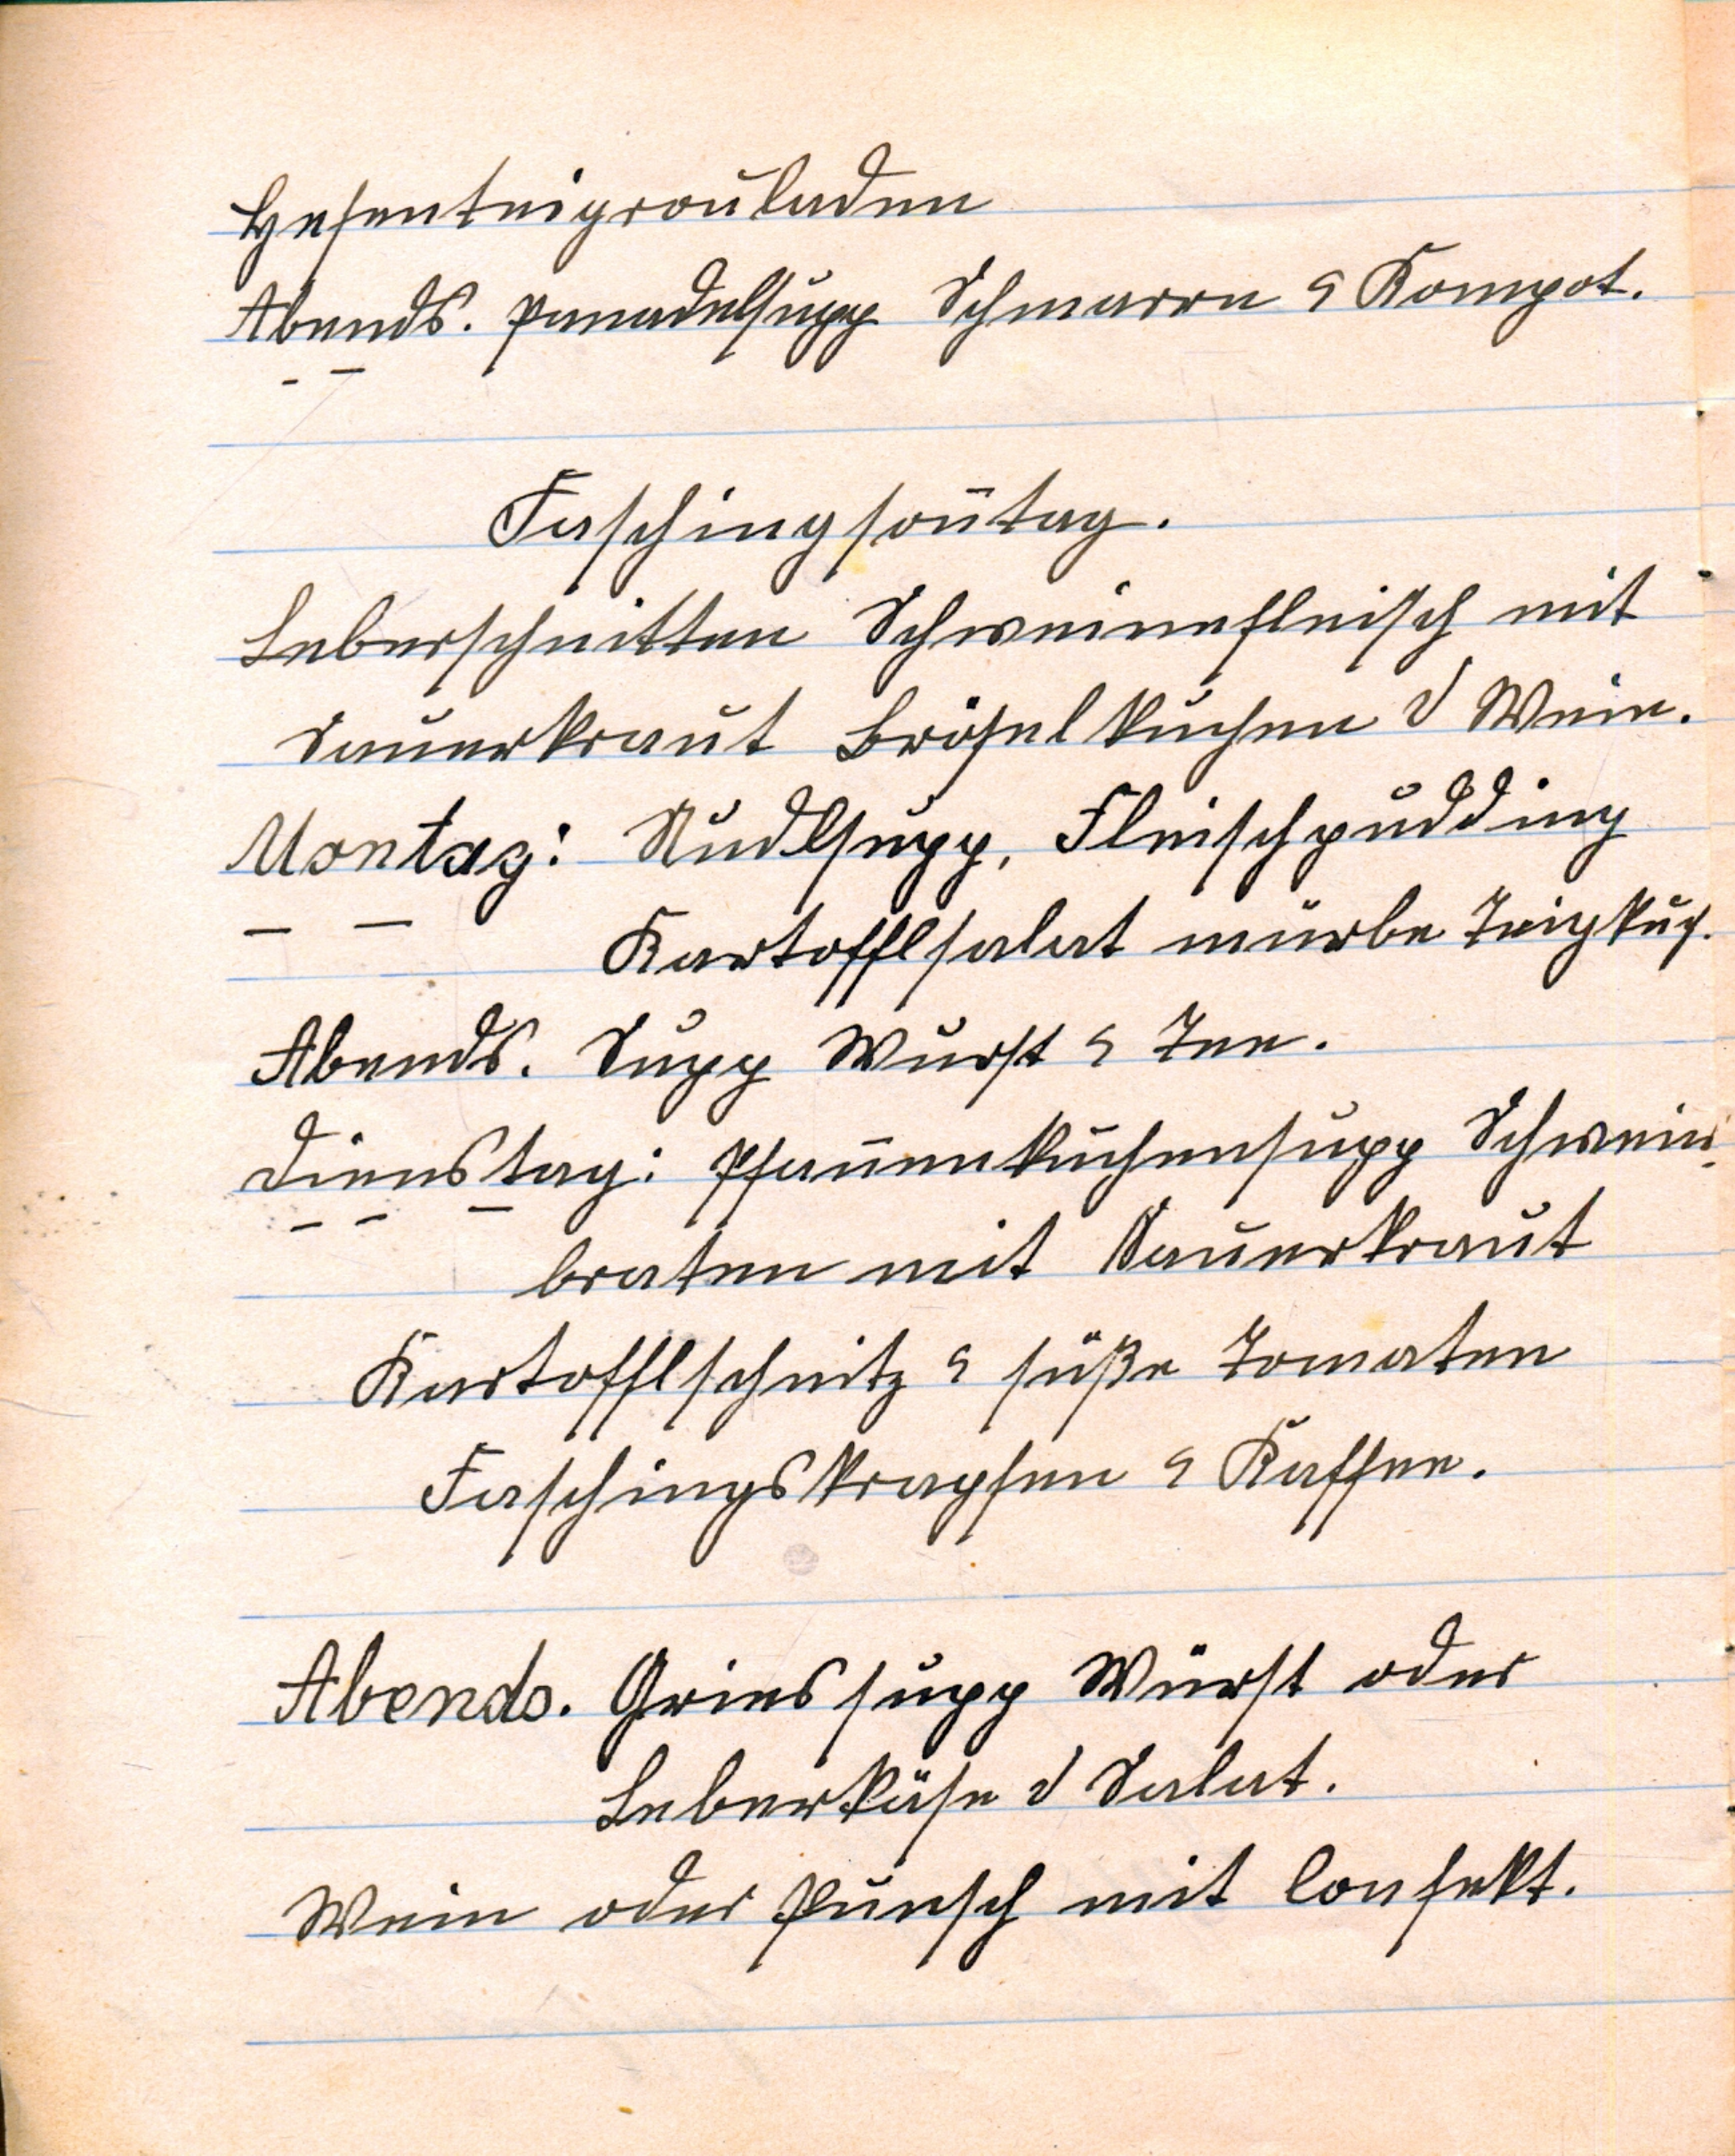 Hefenteigrouladen
Abends. Panadelsupp Schmarrn & Kompot.
Faschingsoñtag.
Leberschnitten Schweinefleisch mit
Sauerkraut Bröselkuchen & Wein.
Montag: Nudlsupp, Fleischpudding
Kartofflsalat mürbe Teigkuch.
Abends. Supp Wurst & Tee.
Dienstag: Pfañenkuchensupp Schwein-
braten mit Sauerkraut
Kartofflschnitz & süße Tomaten
Faschingskrapfen & Kaffee.
Abends. Griessupp Würst oder
Leberkäse & Salat.
Wein oder Punsch mit Confekt.